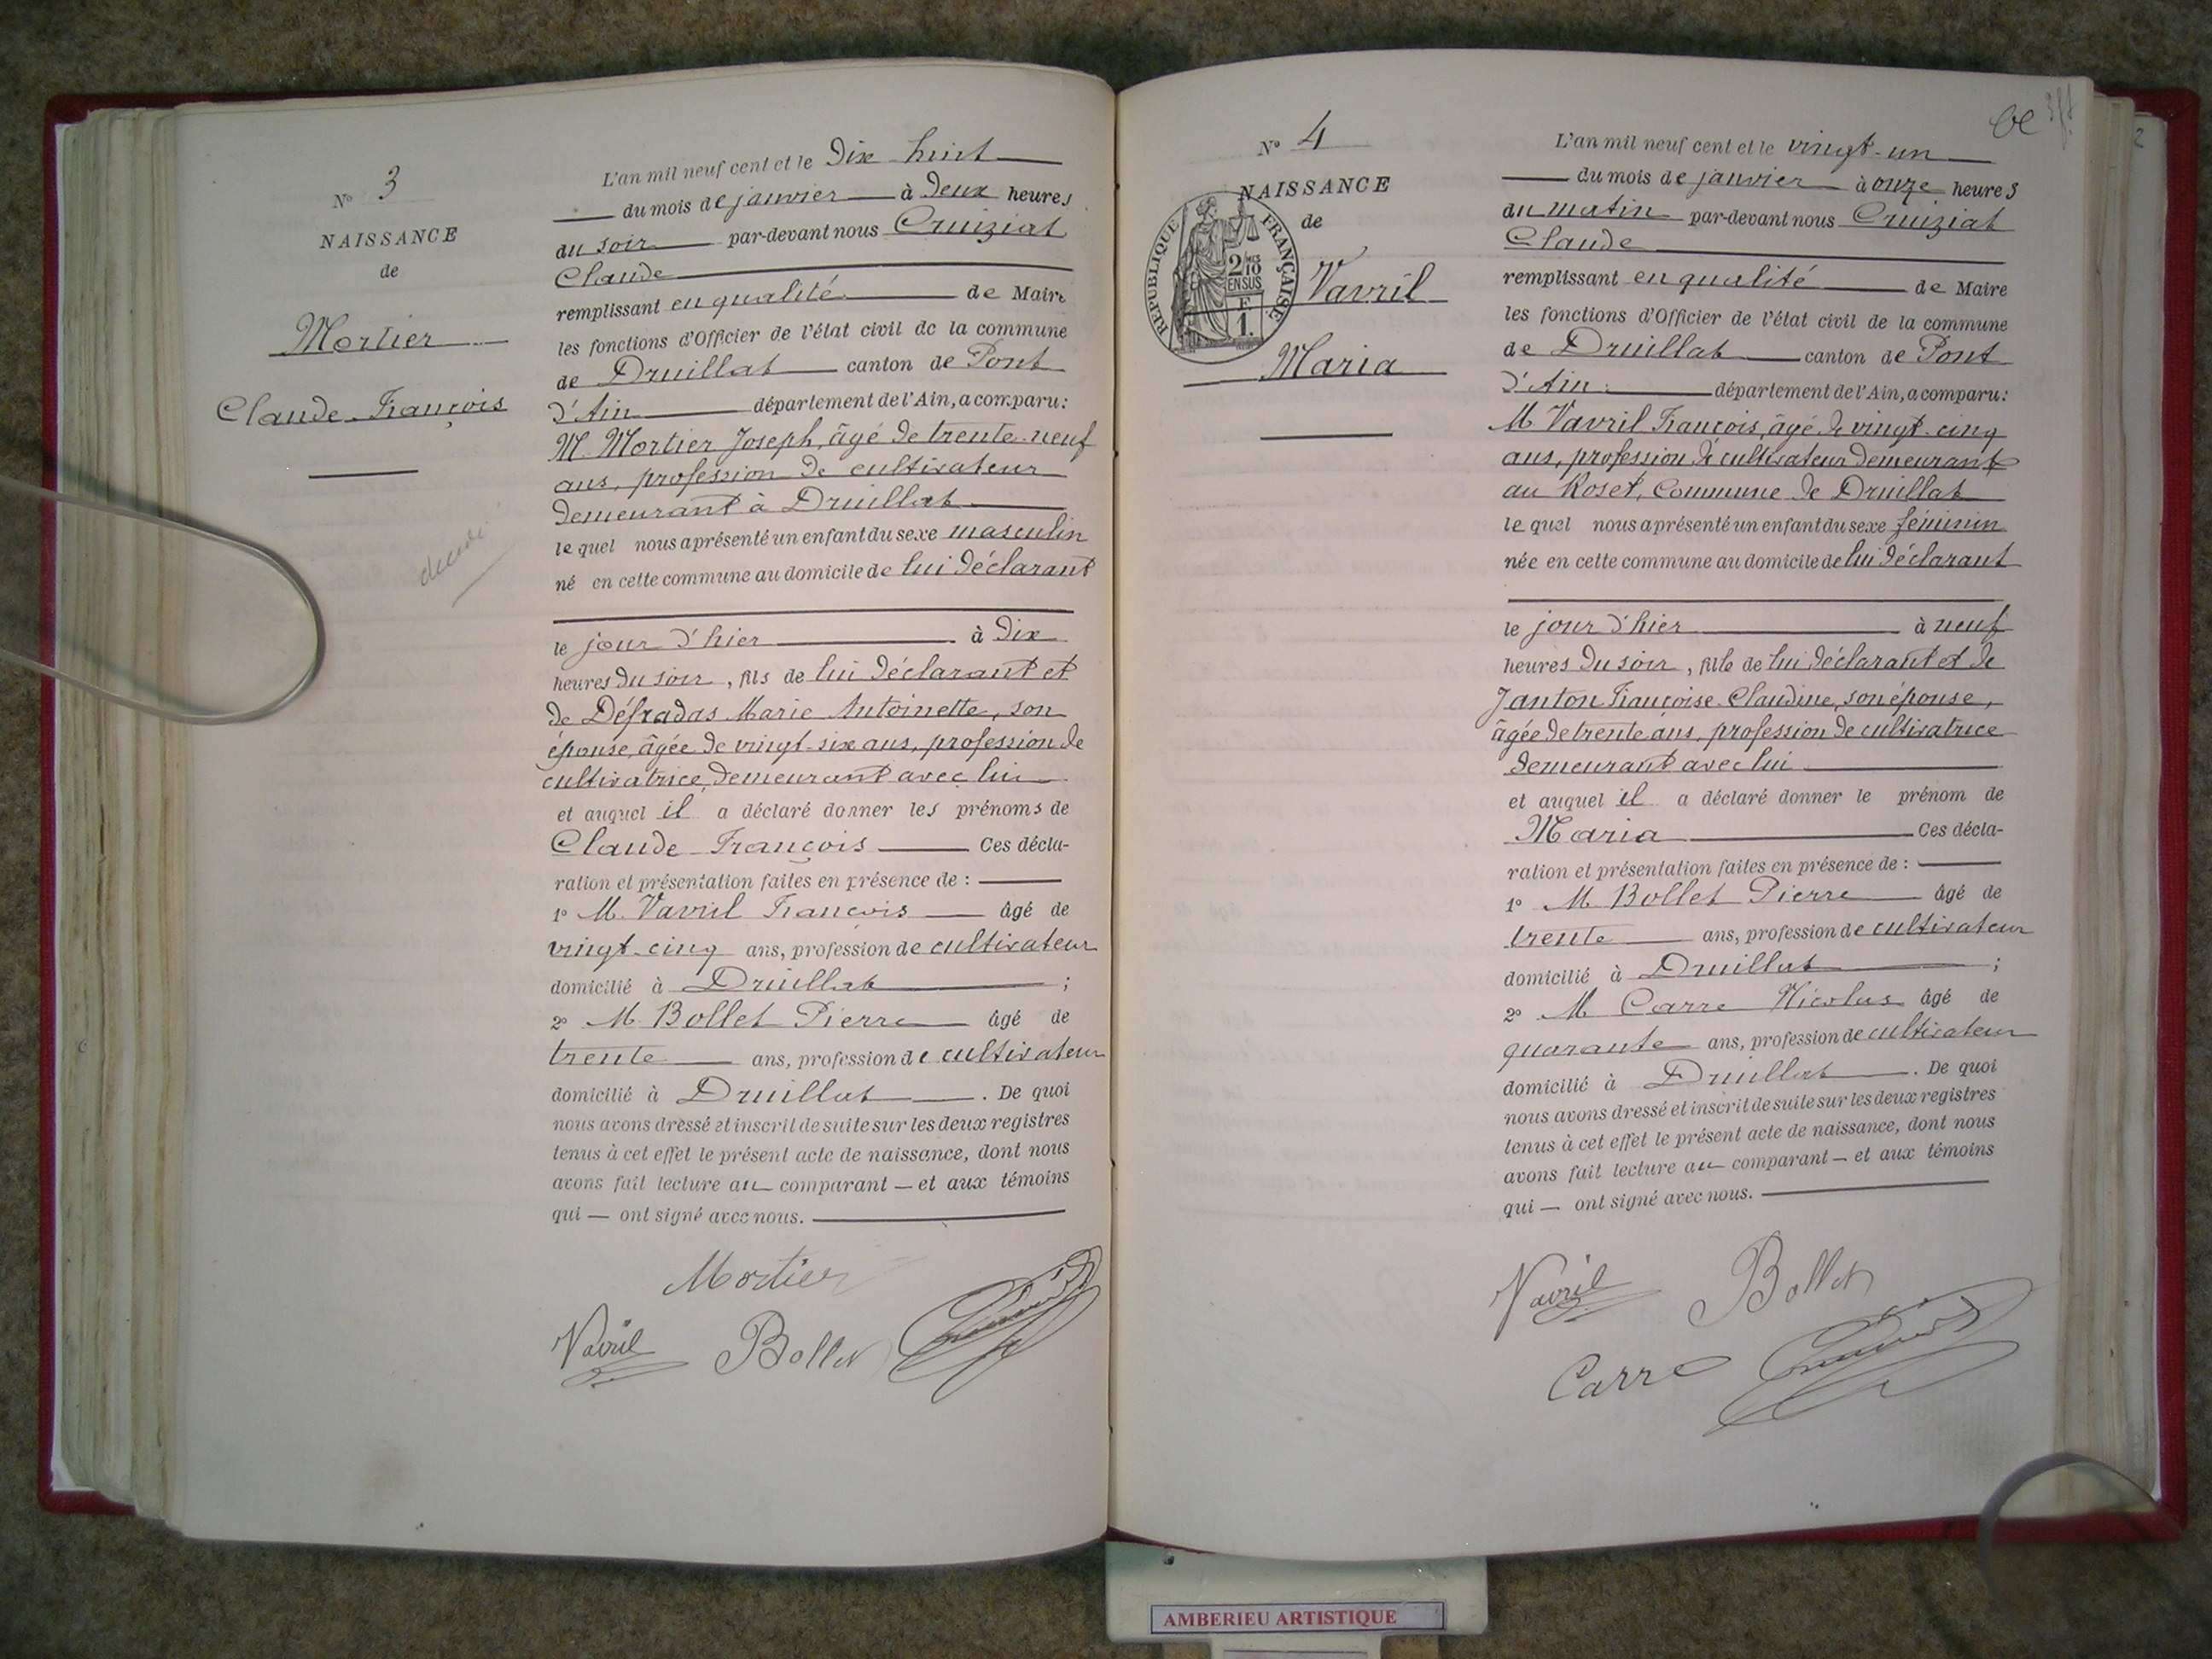 N° 3
NAISSANCE
de
Mortier
Claude François
décédé
L'an mil neuf cent et le dix huit
du mois de janvier à deux heures
du soir par-devant nous Cruiziat
Claude
remplissant en qualité de Maire
les fonctions d'Officier de l'état civil de la commune
de Druillat canton de Pont
d'Ain département de l'Ain, a comparu:
M. Mortier Joseph, âgé de trente-neuf
ans, profession de cultivateur
demeurant à Druillat
le quel nous a présenté un enfant du sexe masculin
né en cette commune au domicile de lui déclarant
le jour d'hier à dix
heures du soir, fils de lui déclarant et
de Défradas Marie Antoinette, son
épouse, âgée de vingt-six ans, profession de
cultivatrice, demeurant avec lui
et auquel il a déclaré donner les prénoms de
Claude François Ces décla-
ration et présentation faites en présence de :
1° M. Vavril François âgé de
vingt-cinq ans, profession de cultivateur
domicilié à Druillat ;
2° M. Bollet Pierre âgé de
trente ans, profession de cultivateur
domicilié à Druillat . De quoi
nous avons dressé et inscrit de suite sur les deux registres
tenus à cet effet le présent acte de naissance, dont nous
avons fait lecture au comparant — et aux témoins
qui — ont signé avec nous.
Mortier
Vavril Bollet Cruiziat
N° 4
NAISSANCE
de
RÉPUBLIQUE FRANÇAISE
2/10
EN SUS
F
1.
Vavril
Maria
L'an mil neuf cent et le vingt-un
du mois de janvier à onze heures
du matin par-devant nous Cruiziat
Claude
remplissant en qualité de Maire
les fonctions d'Officier de l'état civil de la commune
de Druillat canton de Pont
d'Ain département de l'Ain, a comparu:
M. Vavril François, âgé de vingt-cinq
ans, profession de cultivateur demeurant
au Roset, Commune de Druillat
le quel nous a présenté un enfant du sexe féminin
née en cette commune au domicile de lui déclarant
le jour d'hier à neuf
heures du soir, fille de lui déclarant et de
Janton Françoise Claudine, son épouse,
âgée de trente ans, profession de cultivatrice
demeurant avec lui
et auquel il a déclaré donner le prénom de
Maria Ces décla-
ration et présentation faites en présence de :
1° M. Bollet Pierre âgé de
trente ans, profession de cultivateur
domicilié à Druillat ;
2° M. Carre Nicolas âgé de
quarante ans, profession de cultivateur
domicilié à Druillat . De quoi
nous avons dressé et inscrit de suite sur les deux registres
tenus à cet effet le présent acte de naissance, dont nous
avons fait lecture au comparant — et aux témoins
qui — ont signé avec nous.
Vavril Bollet
Carre Cruiziat
AMBERIEU ARTISTIQUE